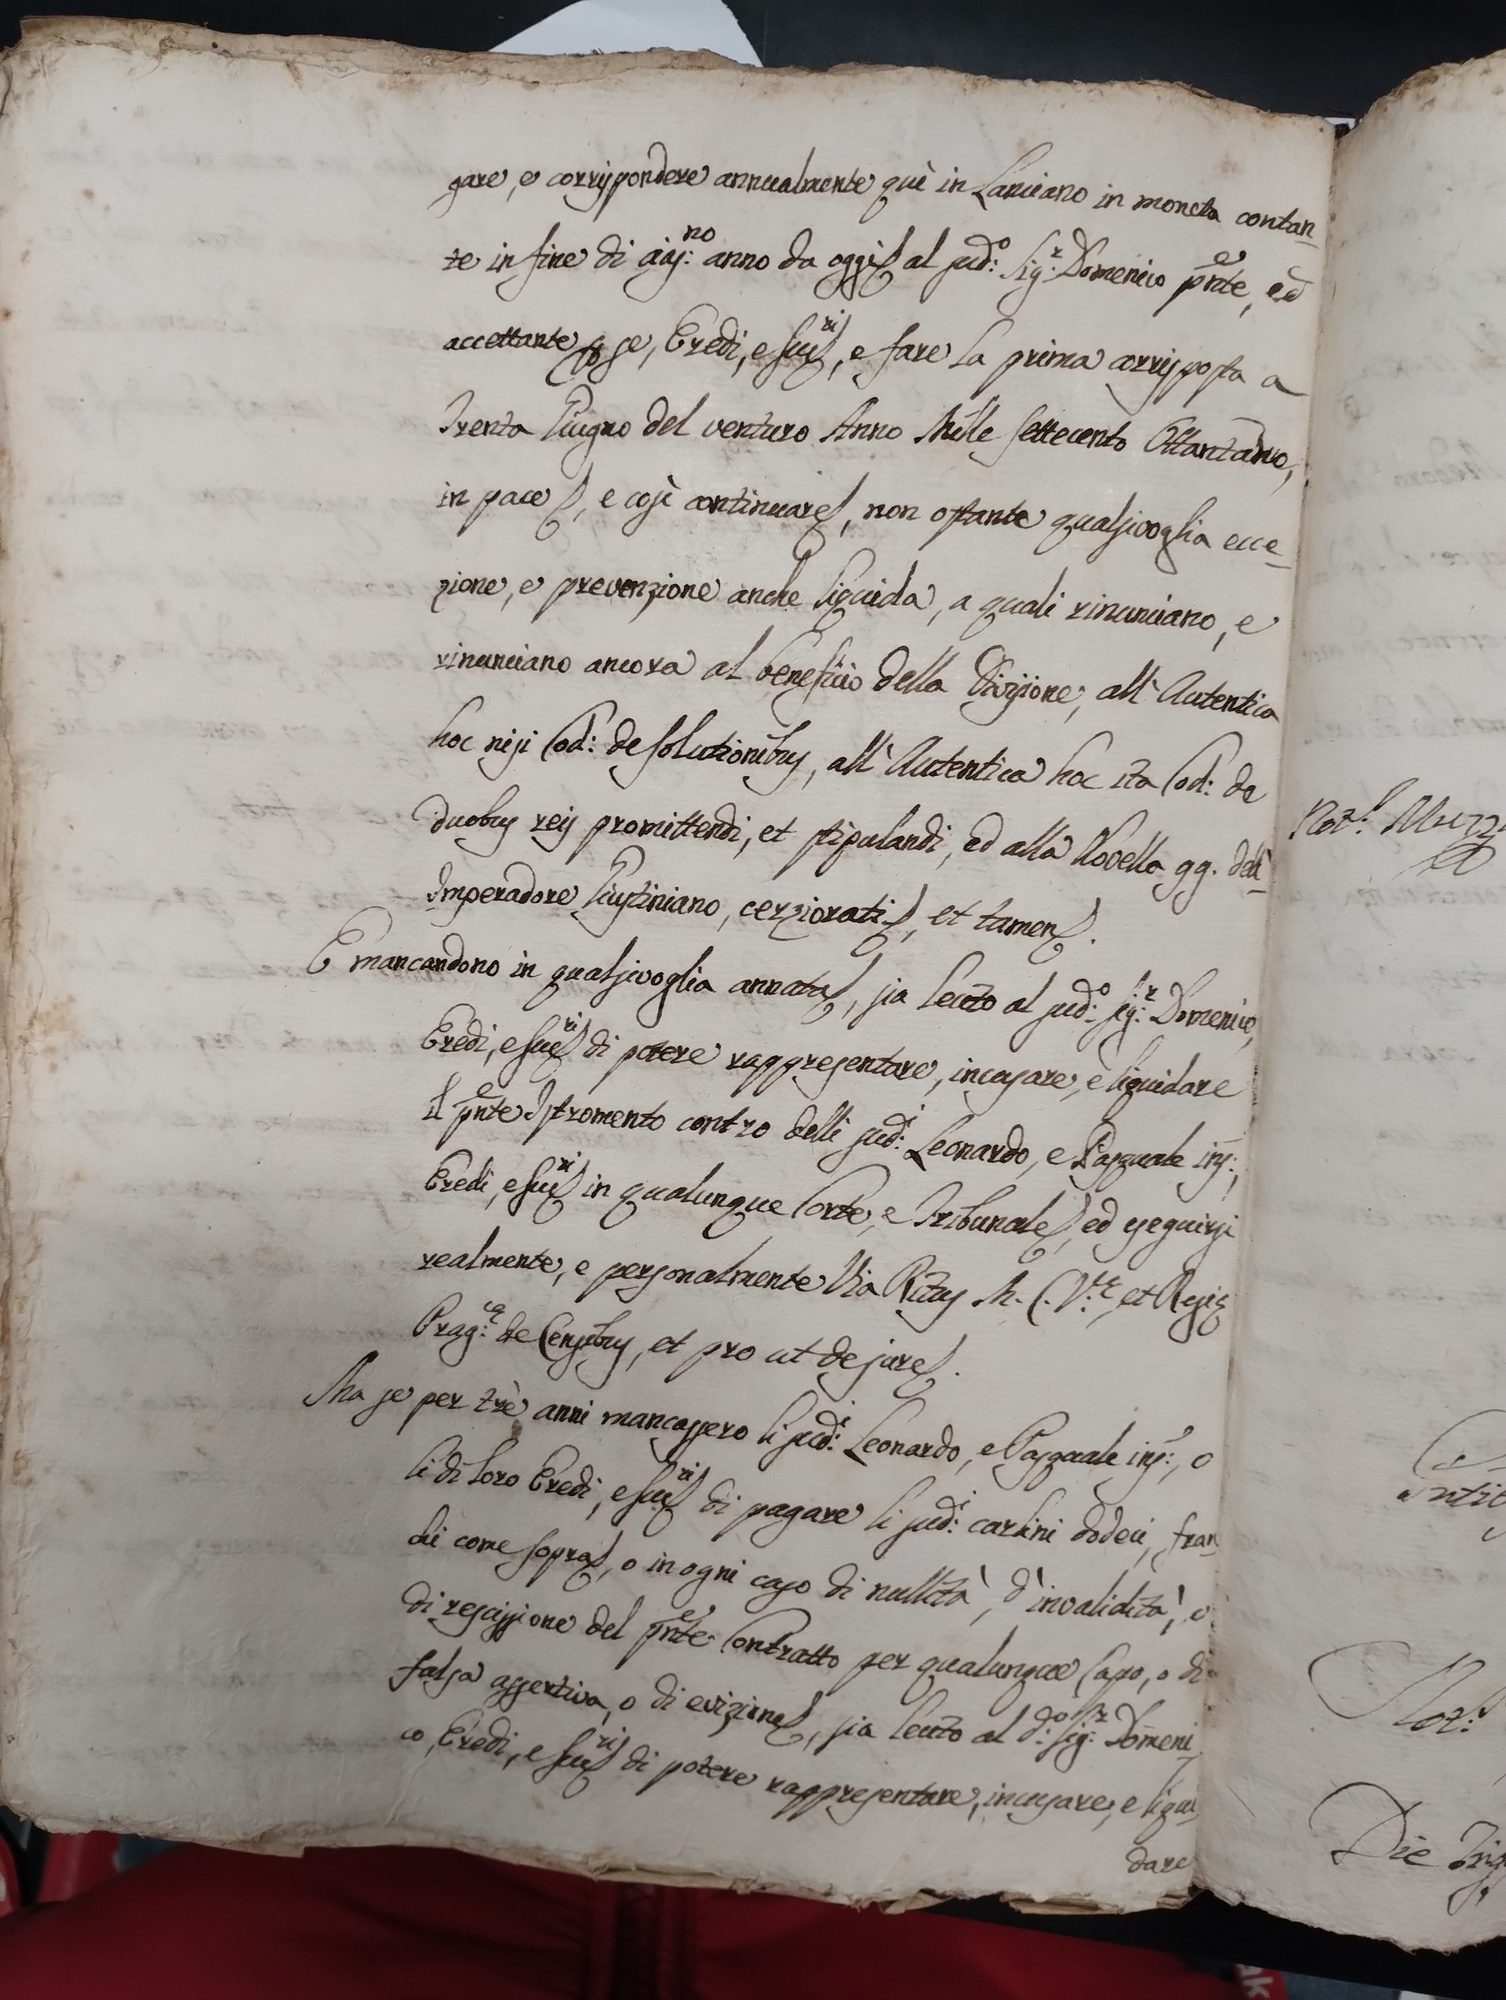 gare, e corrispondere annualmente quì in Lanciano in moneta contan-
te in fine di ciasc:no anno da oggi al sud:o Sig:r Domenico pnte, ed
accettante per se, Eredi, e succ.ri, e fare la prima corrisposta a
Trenta Giugno del venturo Anno Mille Settecento Ottant
in pace, e così continuare, non ostante qualsivoglia ecce-
zione, e prevenzione anche liquida, a quali rinunciano, e
rinunciano ancora al beneficio della Divisione, all'Autentica
hoc nisi Cod: de solutionibus, all'Autentica hoc ita Cod: de
duobus reis promittendi, et stipulandi, ed alla Novella 99. dell'
Imperadore Giustiniano, cerziorati, et tamen.
E mancandono in qualsivoglia annata, sia lecito al sud:o sig:r Domenico,
Eredi, e succ.ri di potere rappresentare, incusare, e liquidare
il pnte Istromento contro delli sud:i Leonardo, e Pasquale ins:,
Eredi, e succ.ri in qualunque Corte, e Tribunale, ed eseguirsi
realmente, e personalmente Via Ritus M. C. V:e, et Regis
Prag:ca de Censibus, et pro ut de jure.
Ma se per trè anni mancassero li sud:i Leonardo, e Pasquale ins:, o
li di loro Eredi, e succ.ri di pagare li sud:i carlini dodeci, fran-
chi come sopra, o in ogni caso di nullità, d'invalidità, o
di rescissione del pnte Contratto per qualunque Capo, o di
falsa assertiva, o di evizione, sia lecito al d:o Sig:r Domeni-
co, Eredi, e succ.ri di potere rappresentare, incusare, e liqui-
dare
Not:r
Die